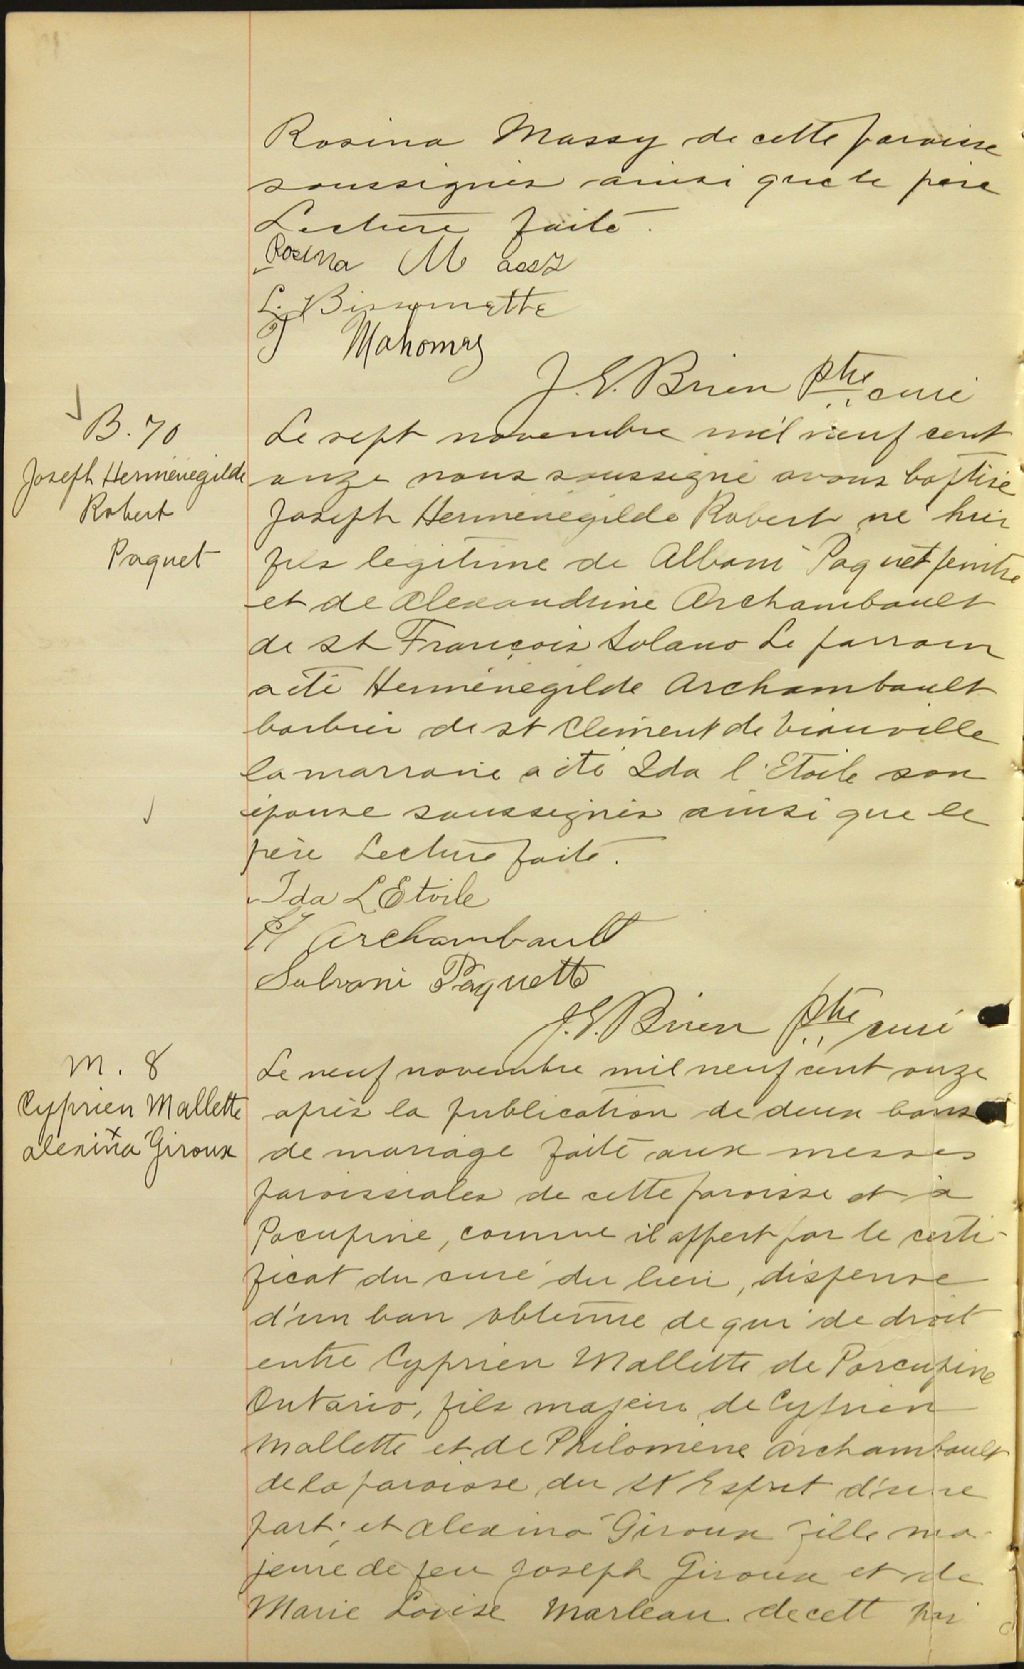 Rosina Massy de cette paroisse
soussignés ainsi que le père
Lecture faite.
Rosina Massy
L. Bissonnette
T Mahomey
J. E. Brien ptre curé
B. 70
Joseph Herménégilde
Robert
Paquet
Le sept novembre mil neuf cent
onze nous soussigné avons baptisé
Joseph Herménégilde Robert né hier
fils légitime de Albani Paquet peintre
et de Alexandrine Archambault
de St François Solano Le parrain
a été Herménégilde Archambault
barbier de St Clément de Viauville
la marraine a été Ida l'Etoile son
épouse soussignés ainsi que le
père Lecture faite.
Ida L'Etoile
H Archambault
Paquette
J. E. Brien ptre curé
M. 8
Cyprien Mallette
x
Alexina Giroux
Le neuf novembre mil neuf cent onze
après la publication de deux bans
de mariage faite aux messes
paroissiales de cette paroisse et à
Pocupine, comme il appert par le certi-
ficat du curé du lieu, dispense
d'un ban obtenue de qui de droit
entre Cyprien Mallette de Porcupine
Ontario, fils majeur de Cyprien
Mallette et de Philomène Archambault
de la paroisse du St Esprit d'une
part; et Alexina Giroux fille ma-
jeure de feu Joseph Giroux et de
Marie Louise Marleau de cett